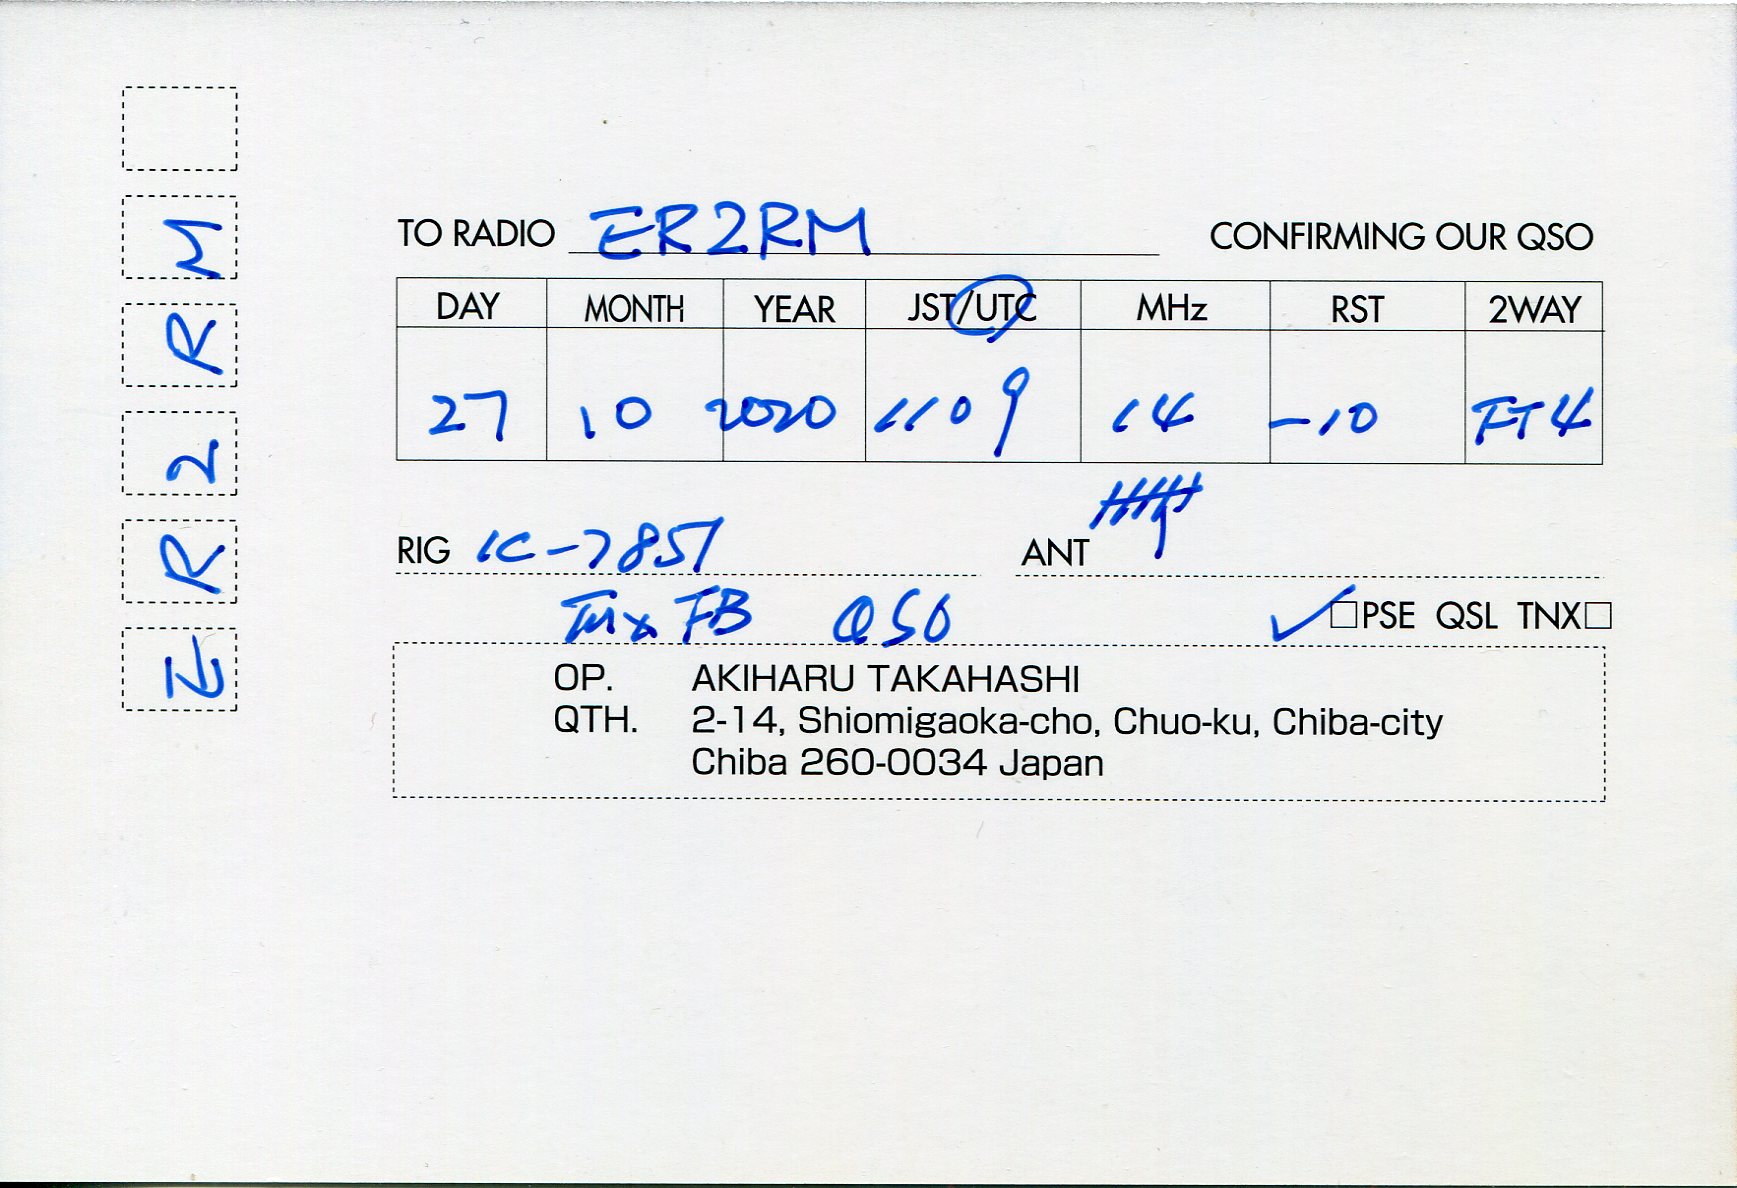 E R 2 R M
TO RADIO ER2RM CONFIRMING OUR QSO
DAY MONTH YEAR JST/UTC MHz RST 2WAY
27 10 2020 1109 14 -10 FT4
RIG IC-7851 ANT
Tnx FB QSO □PSE QSL TNX□
OP. AKIHARU TAKAHASHI
QTH. 2-14, Shiomigaoka-cho, Chuo-ku, Chiba-city
Chiba 260-0034 Japan